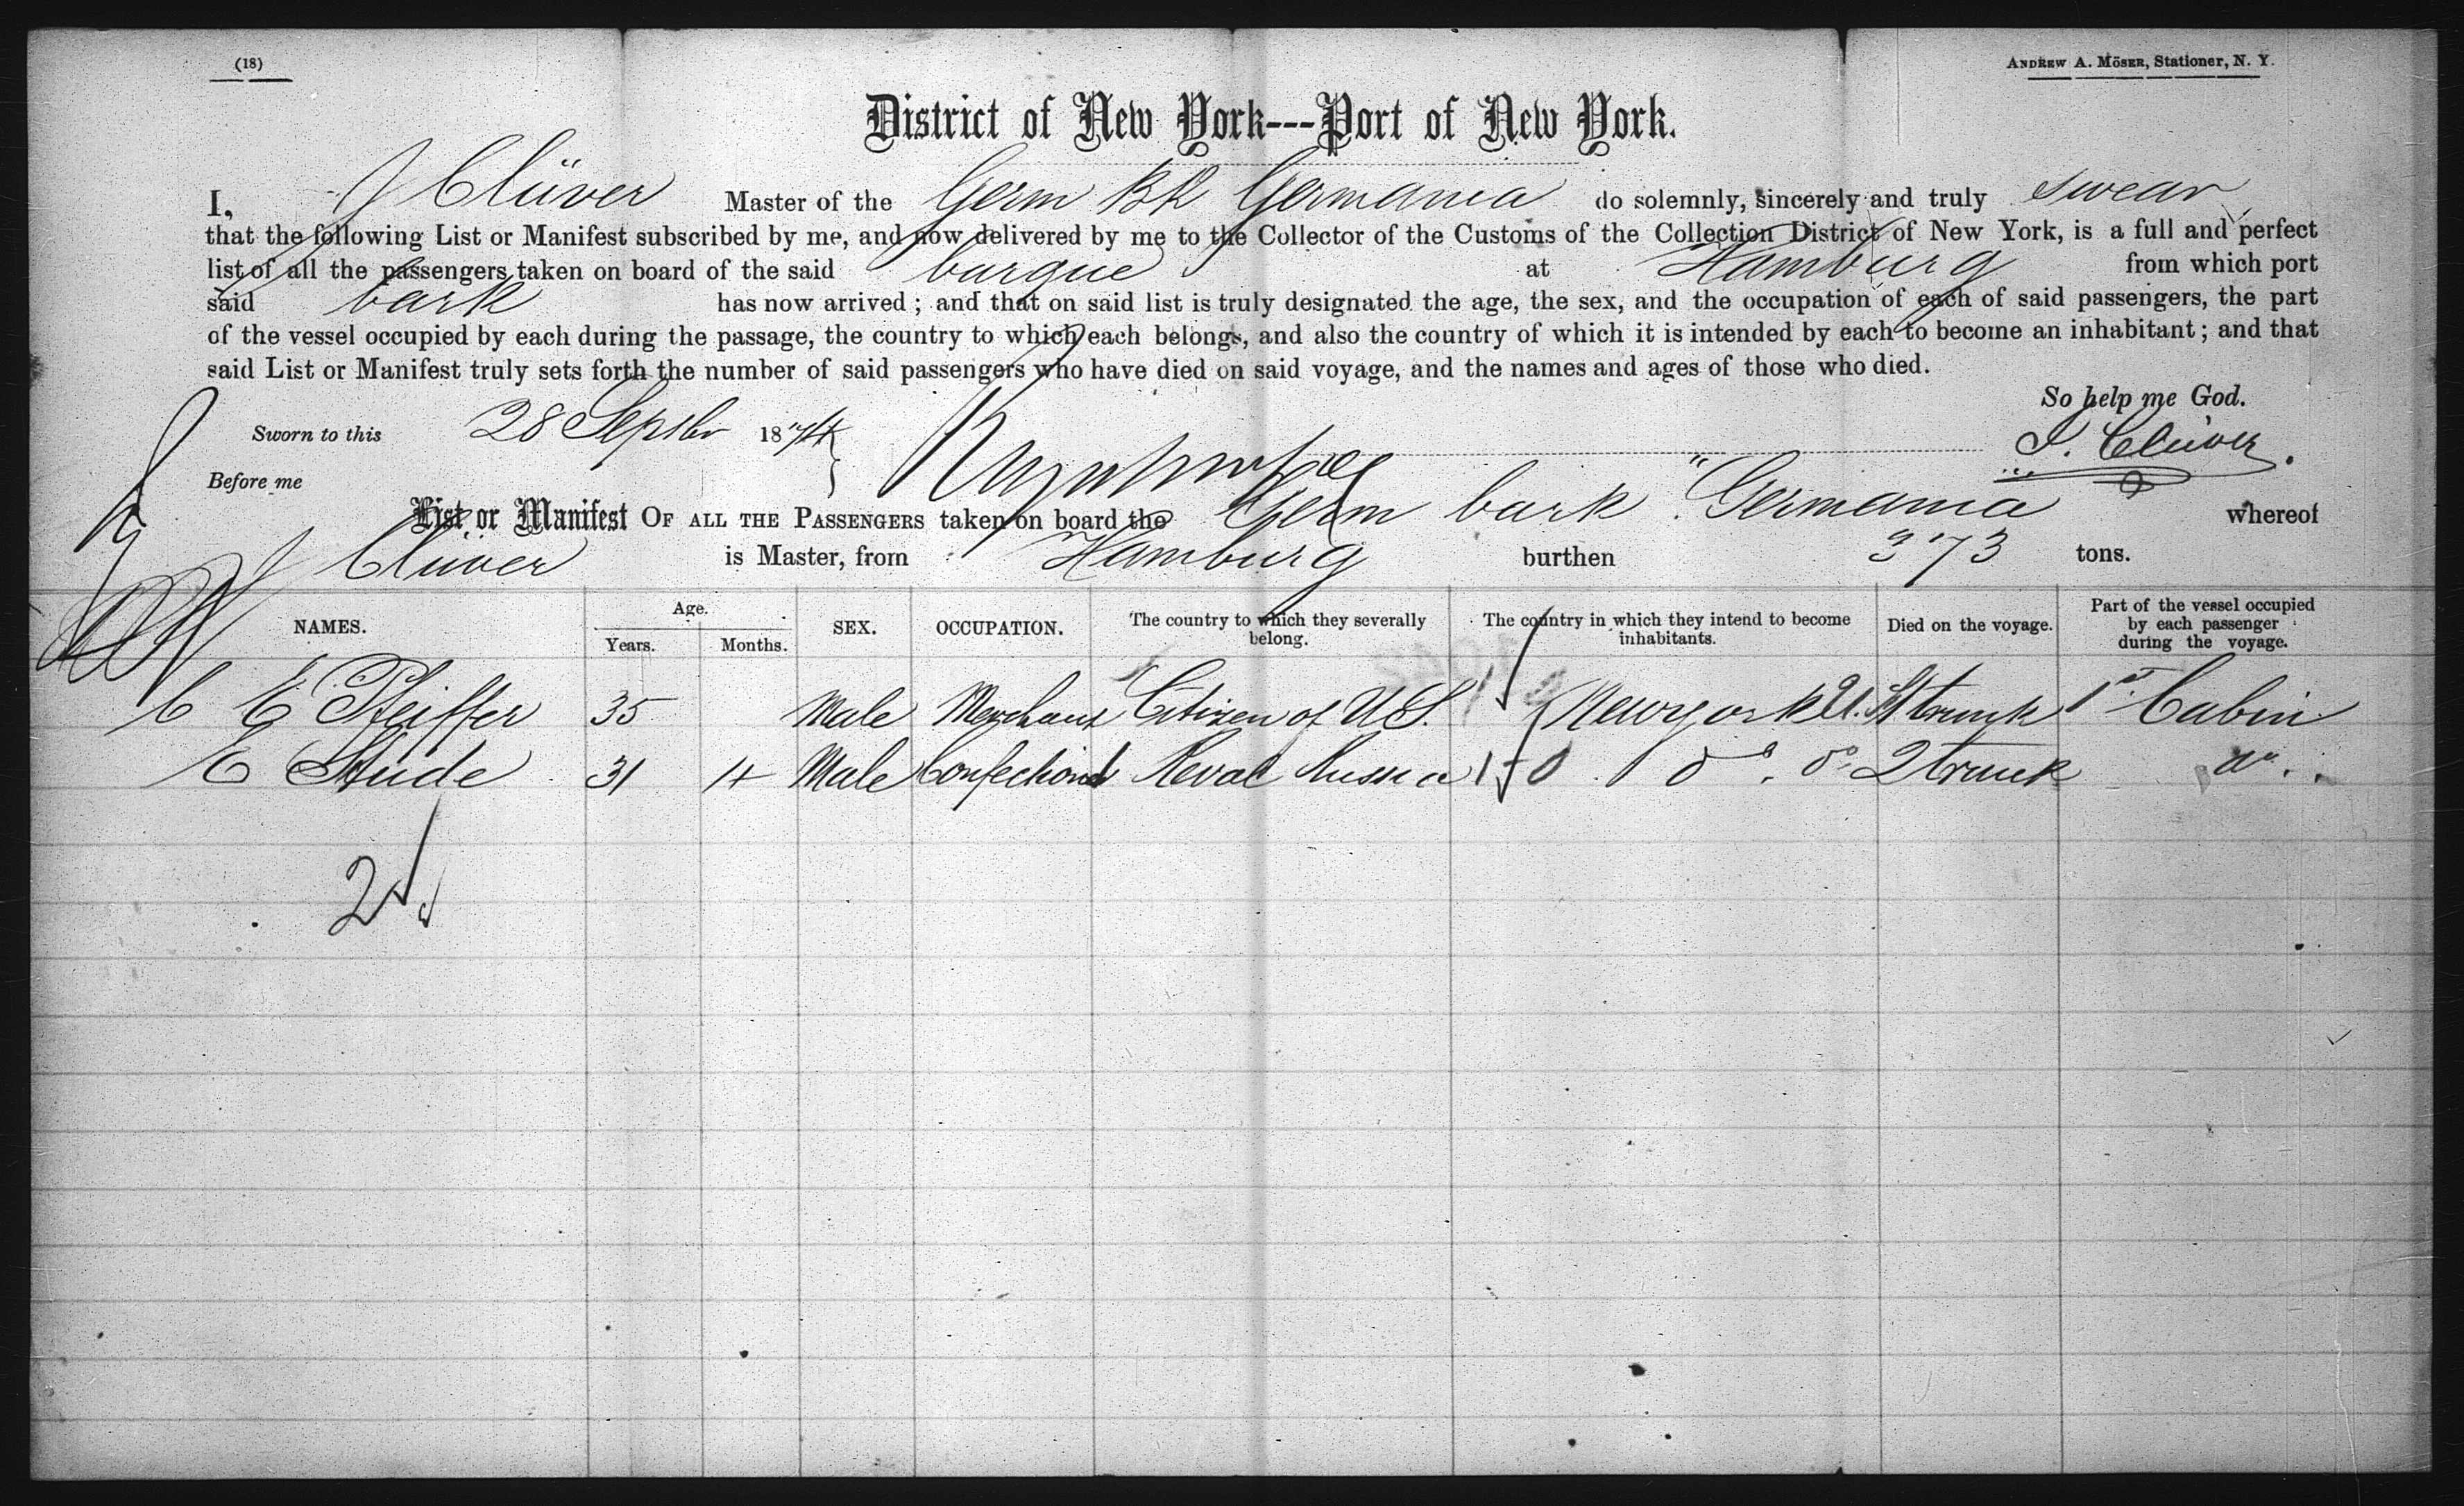 (18)
ANDREW A. MÖSER, Stationer, N. Y.
District of New York---Port of New York.
I, J Clüver Master of the Germ Bk Germania do solemnly, sincerely and truly swear
that the following List or Manifest subscribed by me, and now delivered by me to the Collector of the Customs of the Collection District of New York, is a full and perfect
list of all the passengers taken on board of the said barque at Hamburg from which port
said bark has now arrived; and that on said list is truly designated the age, the sex, and the occupation of each of said passengers, the part
of the vessel occupied by each during the passage, the country to which each belongs, and also the country of which it is intended by each to become an inhabitant; and that
said List or Manifest truly sets forth the number of said passengers who have died on said voyage, and the names and ages of those who died.
So help me God.
Sworn to this 28 Septbr 1874 J. Clüver.
Before me
List or Manifest OF ALL THE PASSENGERS taken on board the Germ bark "Germania whereof
J Clüver is Master, from Hamburg burthen 373 tons.
NAMES. Age. Years. Months. SEX. OCCUPATION. The country to which they severally belong. The country in which they intend to become inhabitants. Died on the voyage. Part of the vessel occupied by each passenger during the voyage.
C E Pfeiffer 35 Male Merchant Citizen of U S. Newyork U. St trunk 1st Cabin
E Stude 31 4 Male Confection Reval Russia do. do 2 trunk do.
2